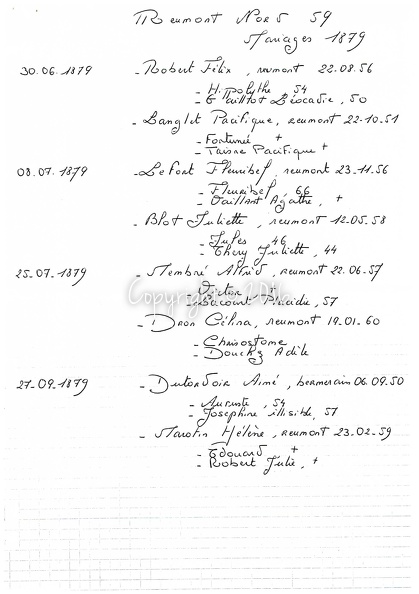 Reumont Nord 59
Mariages 1879
30.06.1879 - Robert Félix, reumont 22.08.56
- Hippolythe 54
- Taillfot Léocadie, 50
- Langlet Pacifique, reumont 22-10-51
- Fortunée +
- Taisne Pacifique +
08.07.1879 - Lefort Fleuribel, reumont 23-11-56
- Fleuribel, 66
- Vaillant Agathe, +
- Blot Juliette, reumont 12-05.58
- Jules 46
- Thery Juliette, 44
25-07-1879 - Membré Alfrid, reumont 22.06-57
- Victor +
- Bacouat Placidie, 57
- Dron Célina, reumont 19-01-60
- Chrisostome
- Douchz Adèle
27-09-1879 - Dutordoir Aimé, bermerain 06.09.50
- Auguste, 54
- Josephine illisible, 51
- Marotin Hélène, reumont 23-02-59
- Edouard +
- Robert Julie, +
Copyright